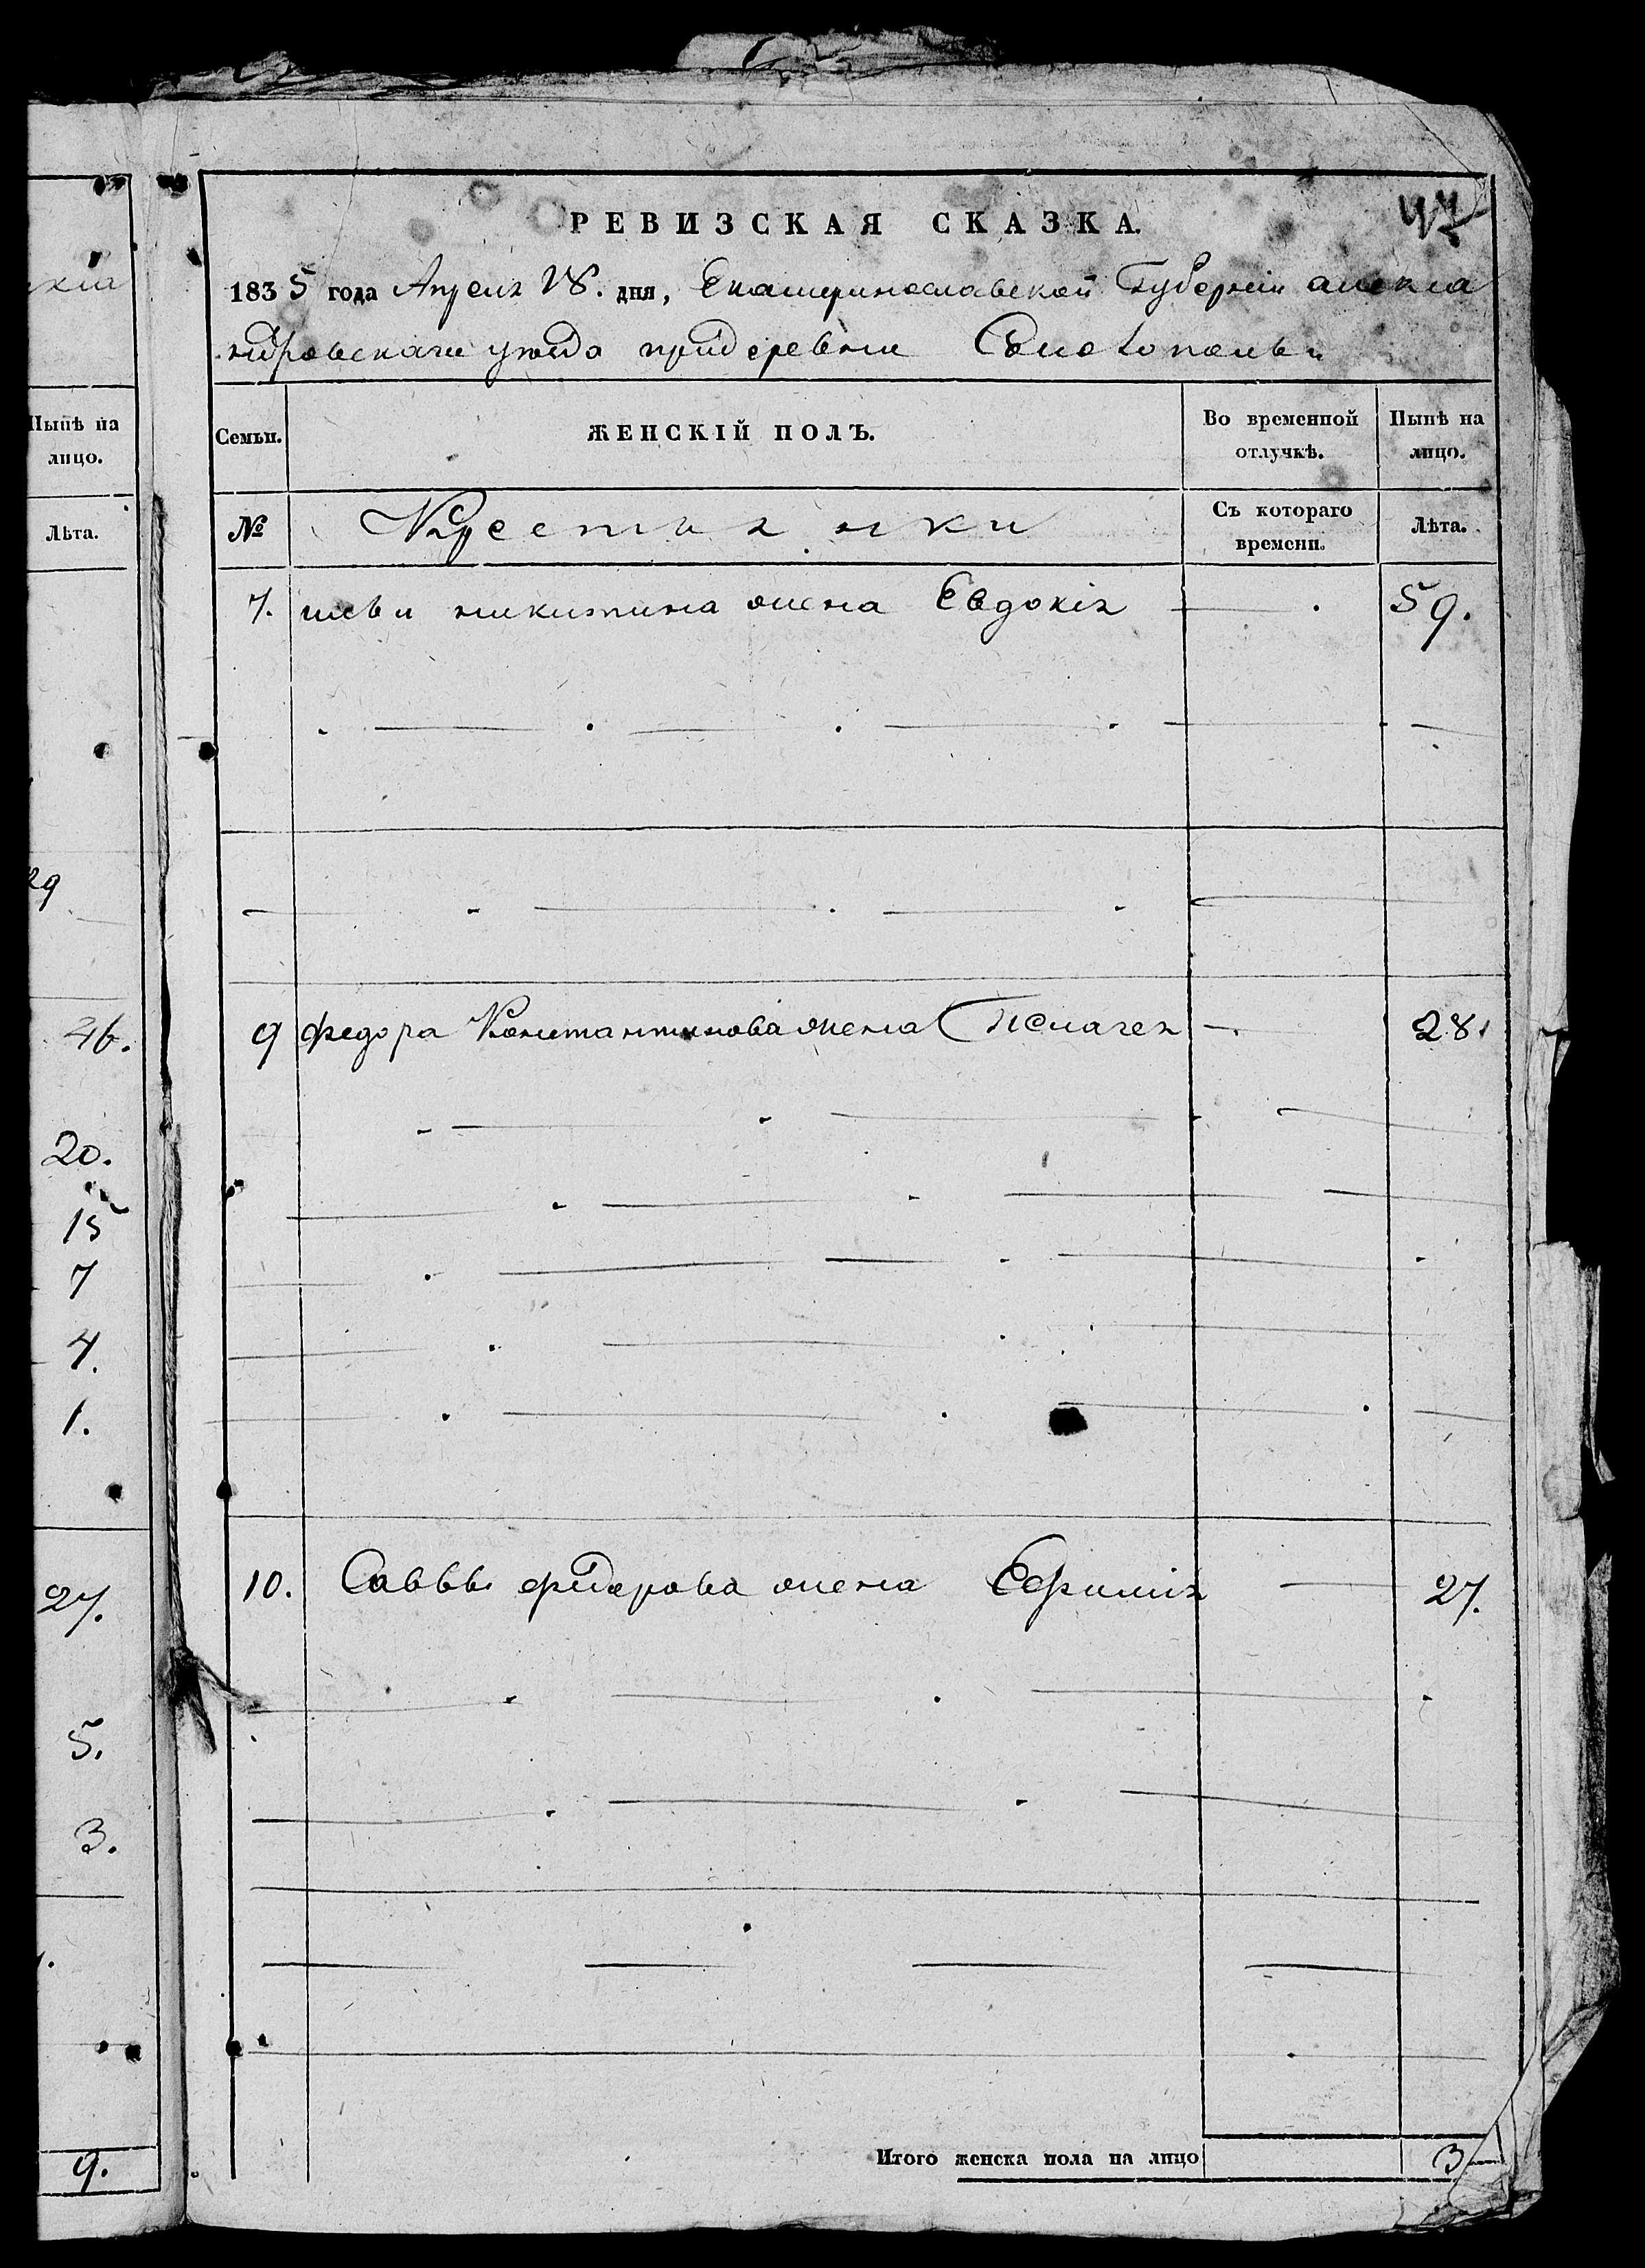 кіа
Нынѣ на
лицо.
Лѣта.
29
46.
20.
15
7
4.
1.
27.
5.
3.
9.
РЕВИЗСКАЯ СКАЗКА.
1835 года Апреля дня, Екатеринославской Губерніи алекса
ндровскаго уезда при деревни
Семьи. ЖЕНСКІЙ ПОЛЪ. Во временной отлучкѣ. Нынѣ на лицо.
№ Крестьянки Съ котораго времени. Лѣта.
7. никитина жена Евдокія 59.
9 Федора Константинова жена Пелагея 28.
10. Саввы федорова жена Ефимія 27.
Итого женска пола на лицо 3